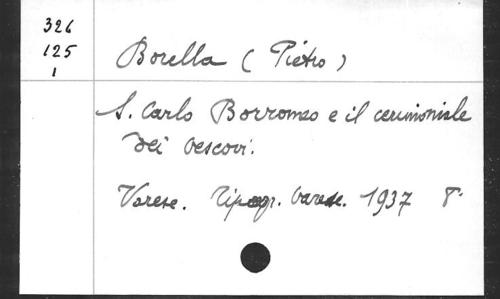 326
125
1
Borella (Pietro)
S. Carlo Borromeo e il cerimoniale
dei vescovi.
Varese. Tipogr. Varese. 1937 8°